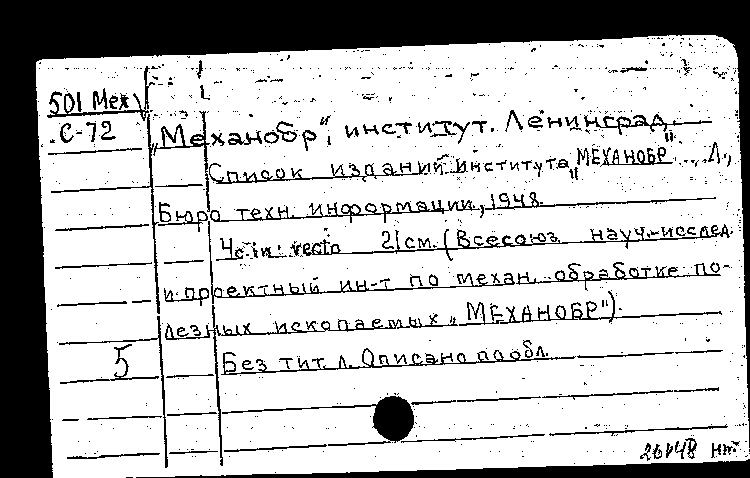 501 Мех
С-72
"Механобр", институт. Ленинград.
Список изданий института "МЕХАНОБР". Л.,
Бюро техн. информации, 1948.
4с. in recto 21см. (Всесоюз. науч.-исслед.
и проектный ин-т по механ. обработке по-
лезных ископаемых "МЕХАНОБР").
5 Без тит. л. Описано по обл.